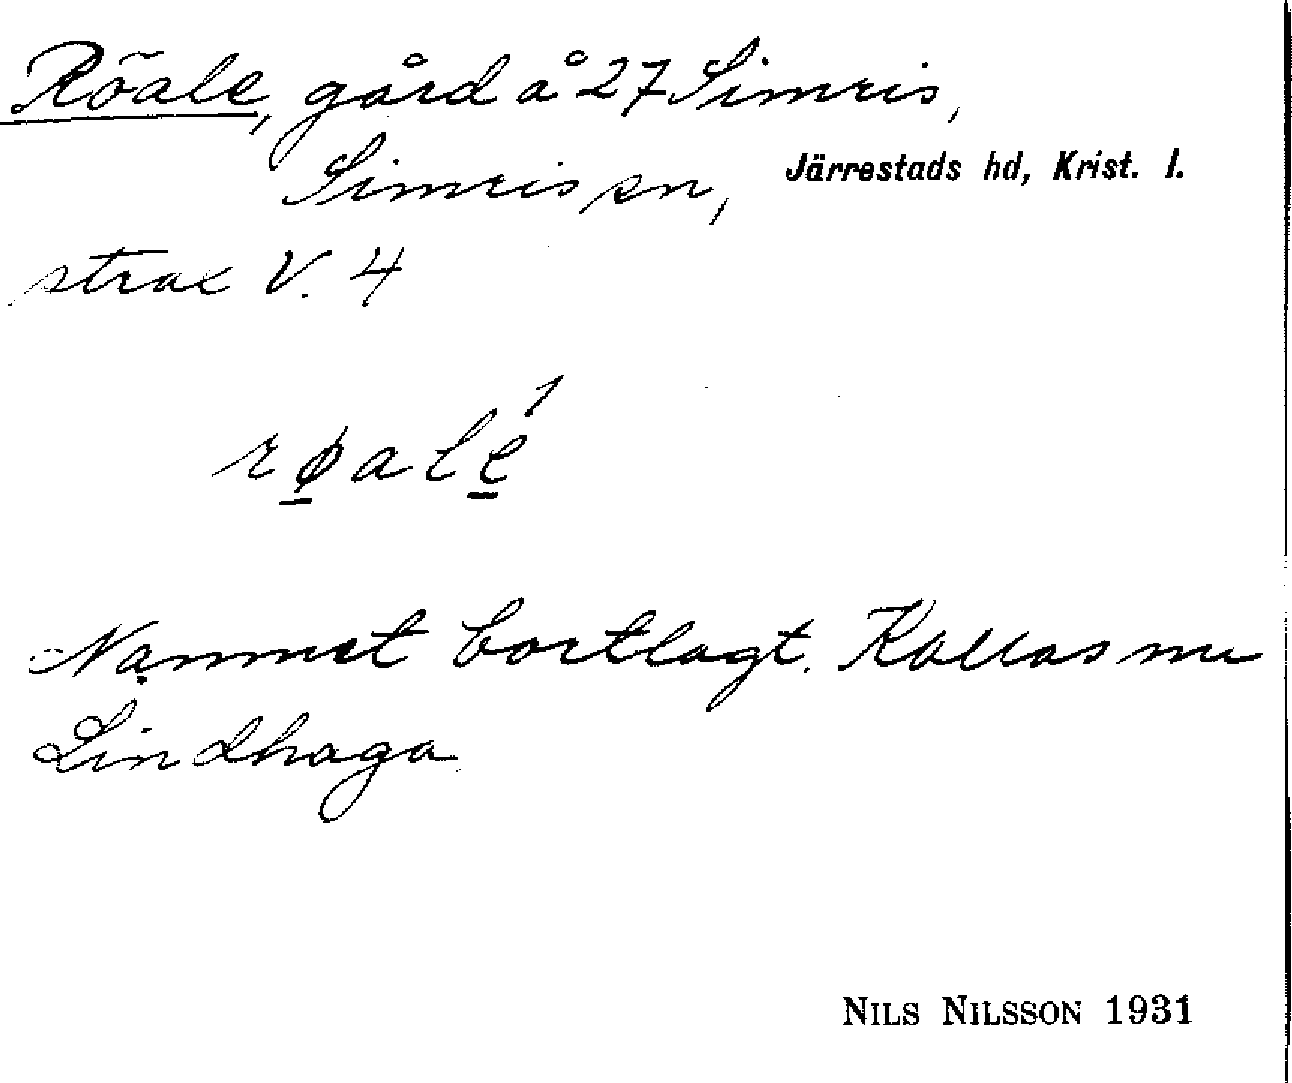 Röale, gård å 27 Simris,
Simris sn, Järrestads hd, Krist. l.
strax V. 4
røalé
Namnet bortlagt. Kallas nu
Lindhaga
NILS NILSSON 1931